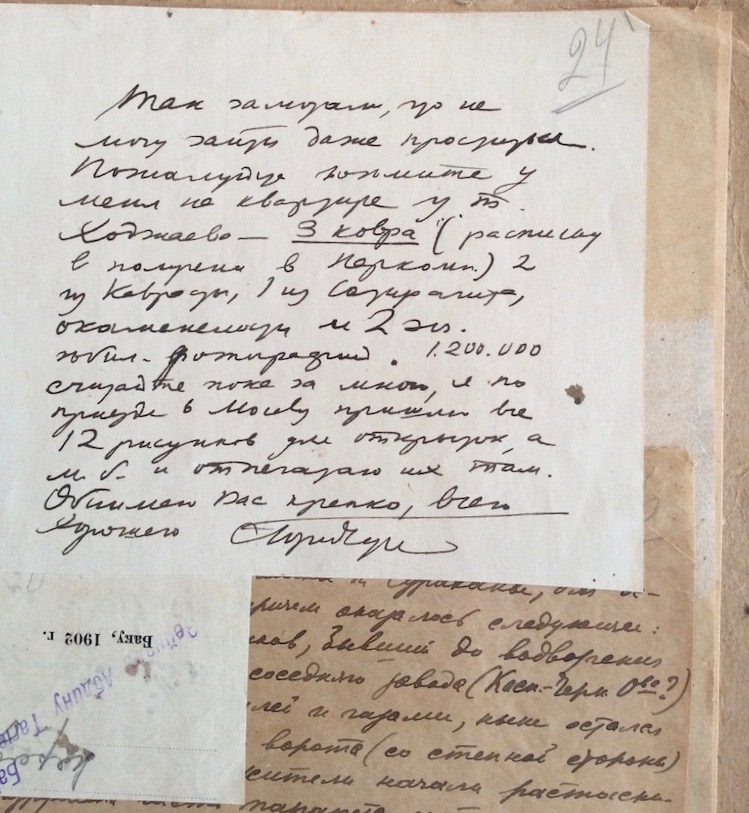 24
Так замотали, что не
могу зайти даже проститься.
Пожалуйста возьмите у
меня на квартире у т.
Ходжаева — 3 ковра (расписку
в получении в Нарком.) 2
из Кавроды, 1 из
окаменелости и 2 эк.
юбил. фотографий. 1.200.000
считайте пока за мною, я по
приезде в Москву пришлю все
12 рисунков для открыток, а
м. б. и отпечатаю их там.
Обнимаю Вас крепко, всего
хорошего
и Сураханы,
причем оказалось следующее:
бывший до водворения
соседнего завода (Касп.-Черн. О-ва?)
и газами, ныне остался
ворота (со степной стороны)
жители начали растаски-
Баку, 1902 г.
Абдину